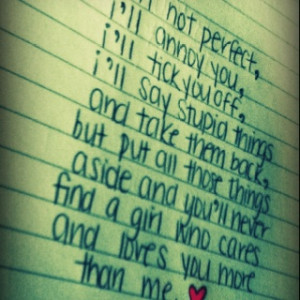 not perfect,
i'll annoy you,
i'll tick you off,
i'll say stupid things
and take them back,
but put all those things
aside and you'll never
find a girl who cares
and loves you more
than me